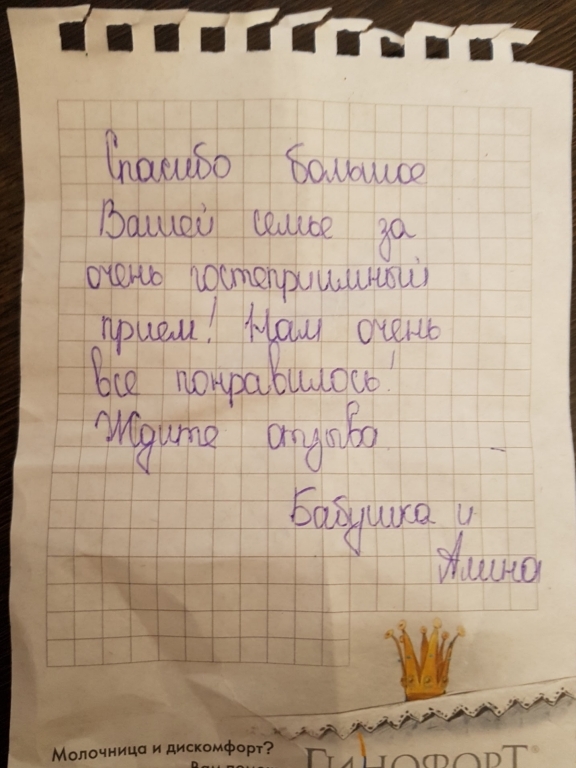 Спасибо большое
Вашей семье за
очень гостеприимный
прием! Нам очень
все понравилось!
Ждите отзыва
Бабушка и
Амина
Молочница и дискомфорт?
ГИНОФОРТ®